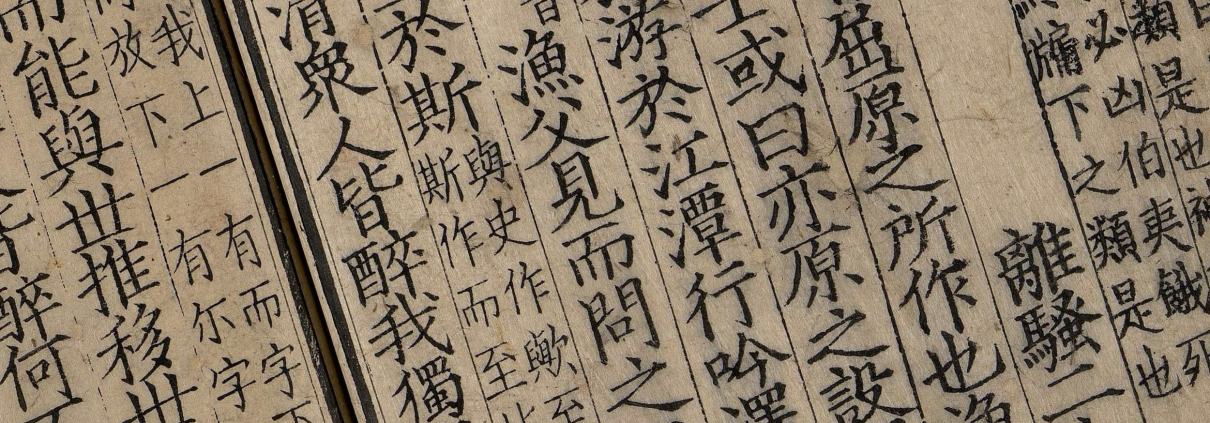 類是也神
必凶伯夷餓死
牖下之類是也
離騷二
屈原之所作也漁
或曰亦原之設
游於江潭行吟澤
漁父見而問之
於斯
與史作歟至
斯作而至
清衆人皆醉我獨
我上一有而字
放下一有尔字
而能與世推移世
皆醉何